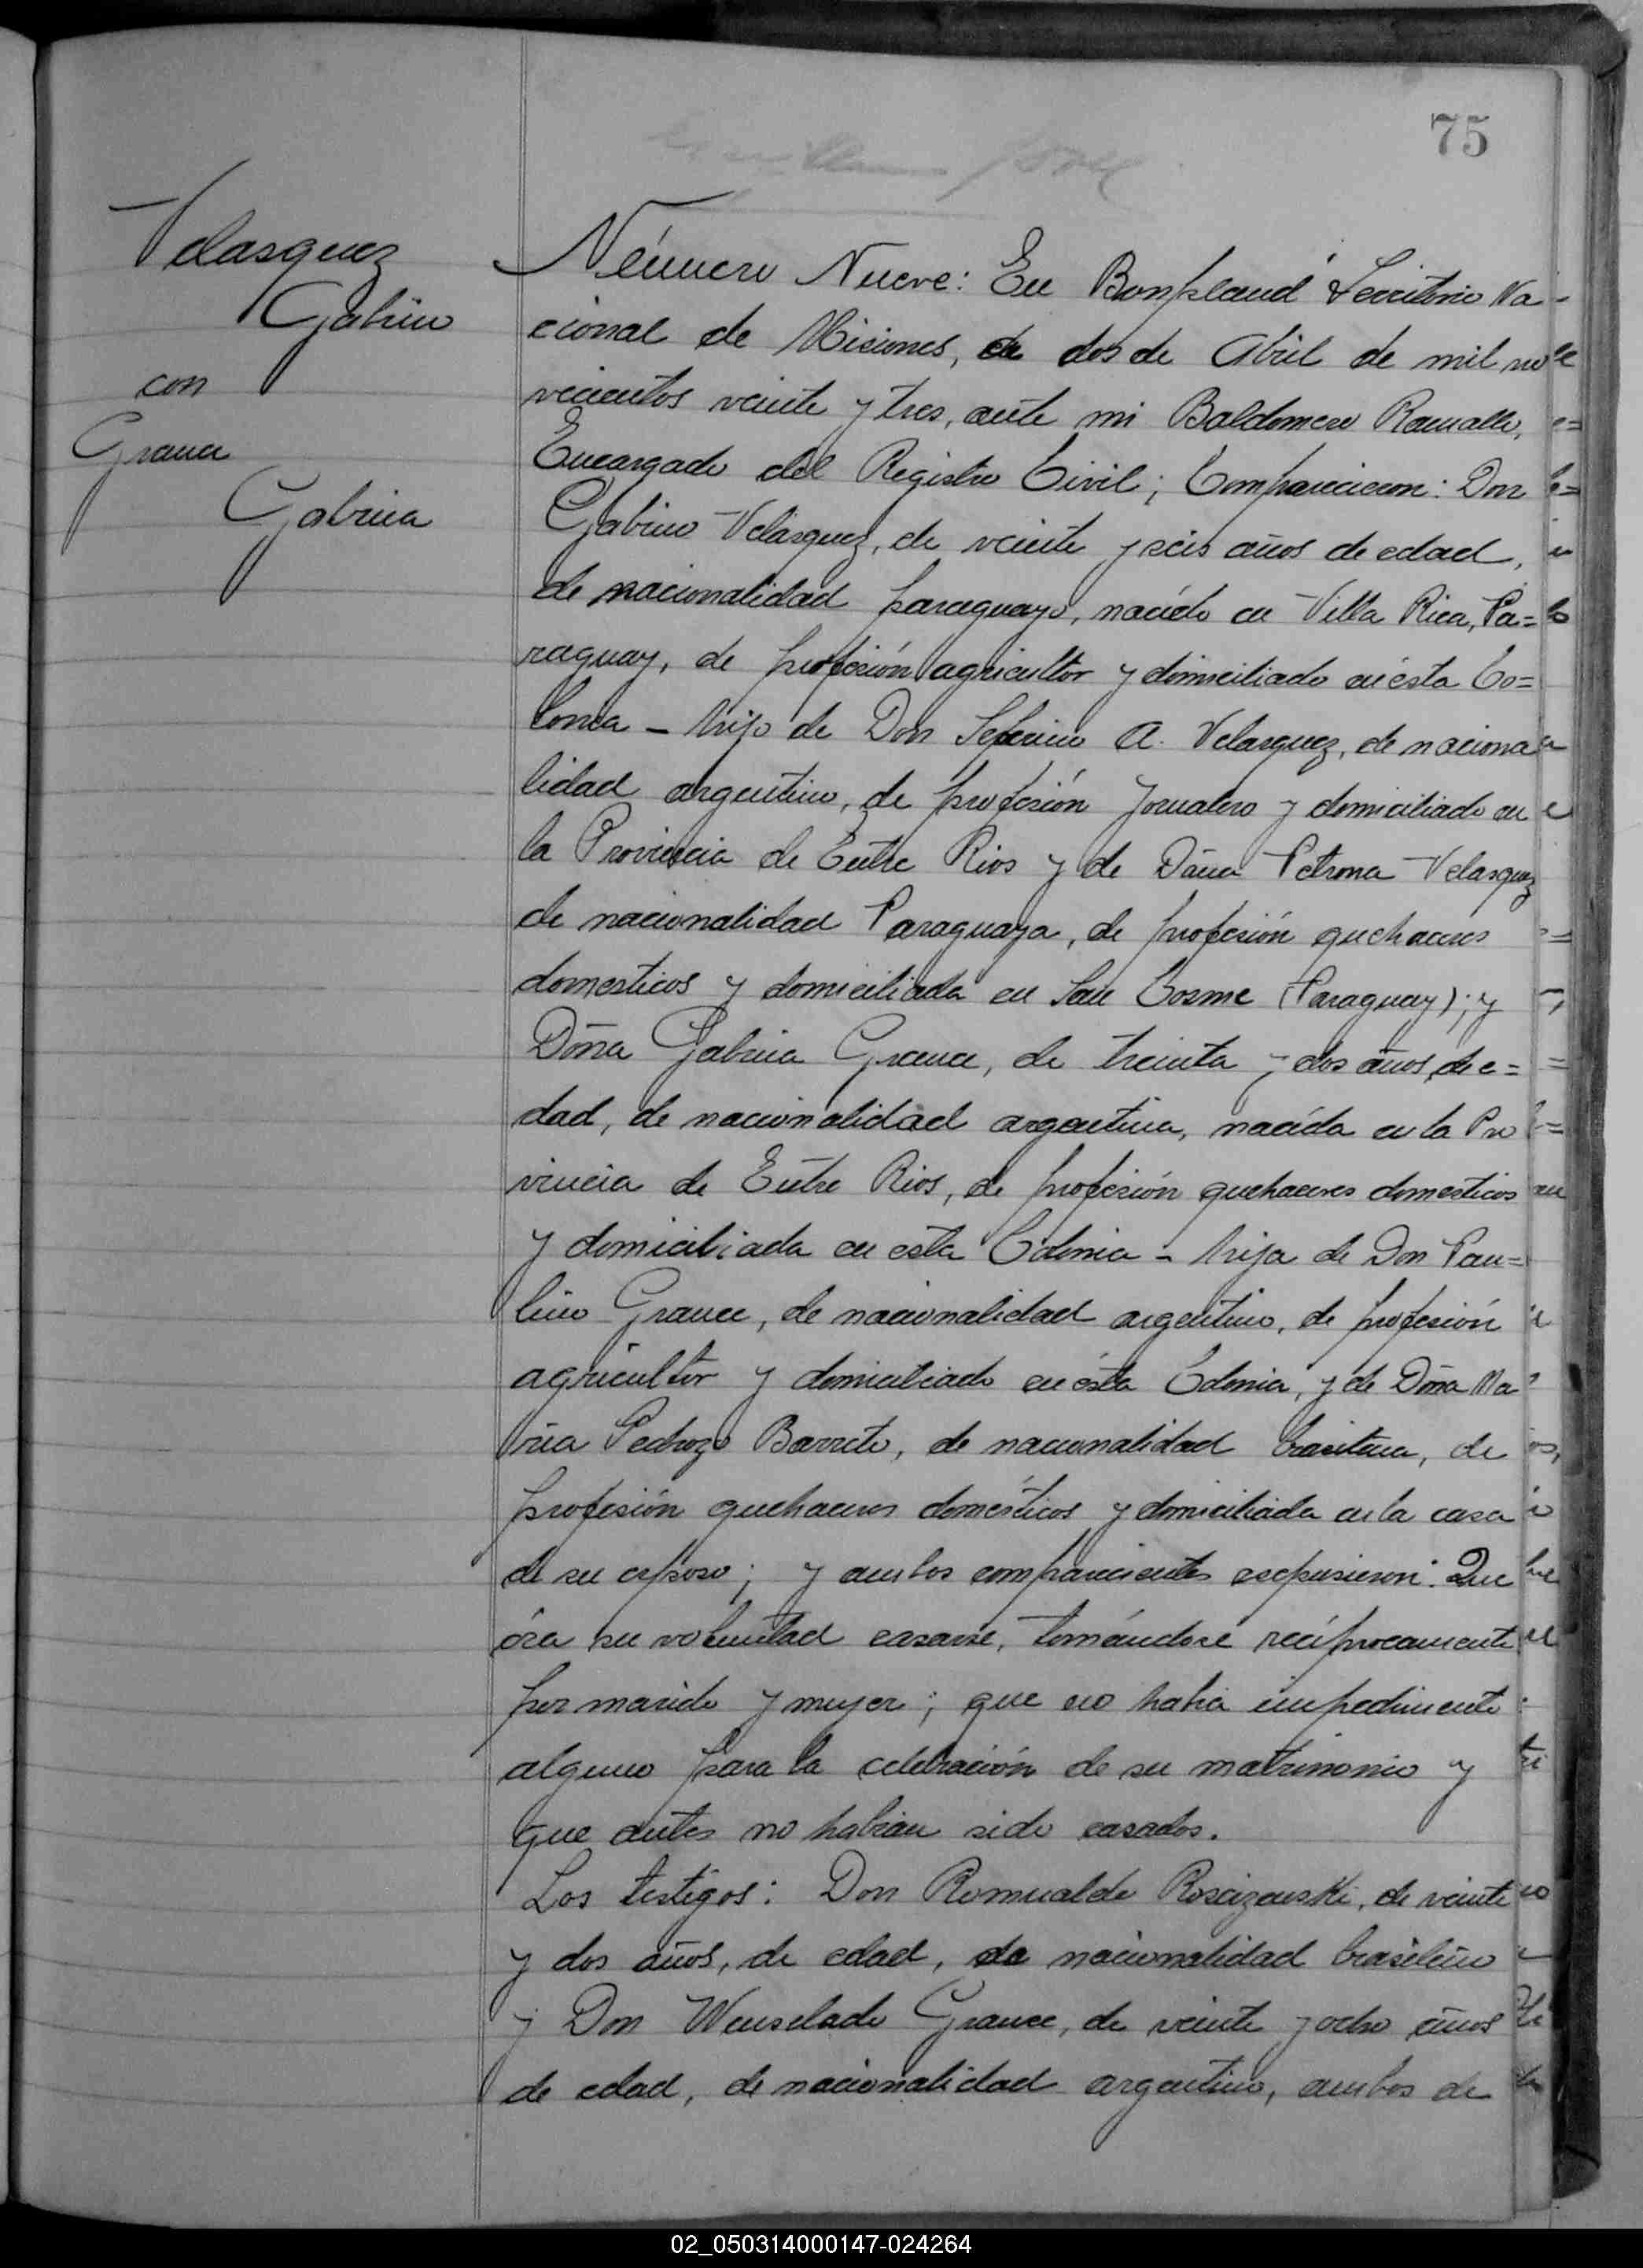 75
Velasquez
Gabino
con
Grance
Gabina
Número Nueve: En Bonpland Territorio Na-
cional de Misiones, a dos de Abril de mil no
vecientos veinte y tres, ante mi Baldomero Ramallo,
Encargado del Registro Civil; Comparecieron: Don
Gabino Velasquez, de veinte y seis años de edad,
de nacionalidad paraguayo, nacido en Villa Rica, Pa=
raguay, de profesión agricultor y domiciliado en ésta Co=
lonia - hijo de Don Seferino A. Velasquez, de naciona
lidad argentino, de profesión jornalero y domiciliado en
la Provincia de Entre Rios y de Doña Petrona Velasquez
de nacionalidad Paraguaya, de profesión quehaceres
domesticos y domiciliada en San Cosme (Paraguay); y
Doña Gabina Grance, de treinta y dos años de e=
dad, de nacionalidad argentina, nacída en la Pro
vincia de Entre Rios, de profesión quehaceres domesticos
y domiciliada en esta Colonia - hija de Don Pau=
lino Grance, de nacionalidad argentino, de profesión
agricultor y domiciliado en ésta Colonia, y de Doña Ma
ria Pedrozo Barreto, de nacionalidad brasilera, de
profesión quehaceres domésticos y domiciliada en la casa
de su esposo; y ambos comparecientes expusieron: Que
éra su voluntad casarse, tomándose recíprocamente
por marido y mujer; que no habia impedimento
alguno para la celebración de su matrimonio y
que antes no habian sido casados.
Los testigos: Don Romualdo Roscizewski, de veinte
y dos años, de edad, de nacionalidad brasileño
y Don Wenselado Grance, de veinte y ocho años
de edad, de nacionalidad argentino, ambos de
02_050314000147-024264